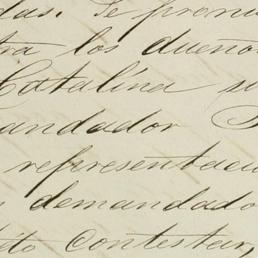 das. Se pronu
tra los dueño
Catalina su
andador
representaci
demandado
contestar,